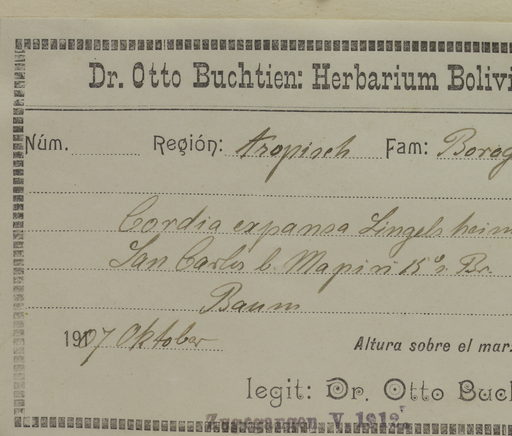 Dr. Otto Buchtien: Herbarium Bolivi
Núm. Región: tropisch Fam: Borag
Cordia expansa Lingelsheim
San Carlos b. Mapiri 15° s. Br.
Baum
1907 Oktober Altura sobre el mar.
legit: Dr. Otto Buc
Zugegangen V. 1912